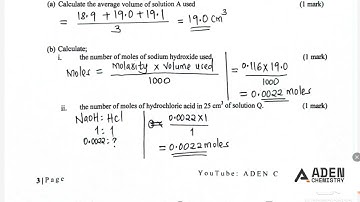 (a) Calculate the average volume of solution A used (1 mark)
= 18.9 + 19.0 + 19.1 / 3 = 19.0 cm³
(b) Calculate;
i. the number of moles of sodium hydroxide used. (1 mark)
Moles = molarity x volume used / 1000
= 0.116 x 19.0 / 1000
= 0.0022 moles
ii. the number of moles of hydrochloric acid in 25 cm³ of solution Q. (1 mark)
NaOH : HCl
1 : 1
0.0022 : ?
0.0022 x 1 / 1
= 0.0022 moles
3 | Page
YouTube: ADEN C
ADEN
CHEMISTRY